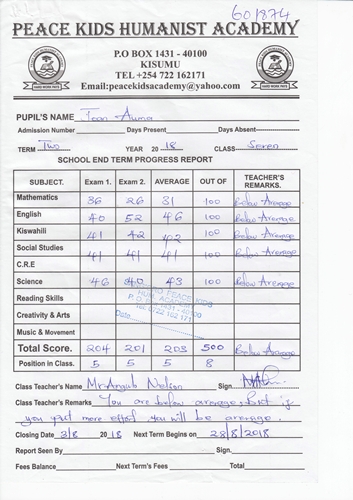 60/874
PEACE KIDS HUMANIST ACADEMY
P.O BOX 1431 - 40100
KISUMU
TEL +254 722 162171
Email:peacekidsacademy@yahoo.com
PUPIL'S NAME Joan Auma
Admission Number Days Present Days Absent
TERM Two YEAR 2018 CLASS Seven
SCHOOL END TERM PROGRESS REPORT
SUBJECT. Exam 1. Exam 2. AVERAGE OUT OF TEACHER'S REMARKS.
Mathematics 36 26 31 100 Below Average
English 40 52 46 100 Below Average
Kiswahili 41 42 42 100 Below Average
Social Studies 41 41 41 100 Below Average
C.R.E
Science 46 40 43 100 Below Average
Reading Skills
Creativity & Arts
Music & Movement
PEACE KIDS
P.O. BOX 1431 - 40100
Tel. 0722 162 171
Date
Total Score. 204 201 203 500 Below Average
Position in Class. 5 5 5 8
Class Teacher's Name Mr Angub Nelson Sign.
Class Teacher's Remarks You are below average. But if
you put more effort you will be average.
Closing Date 3/8 2018 Next Term Begins on 28/8/2018
Report Seen By Sign.
Fees Balance Next Term's Fees Total